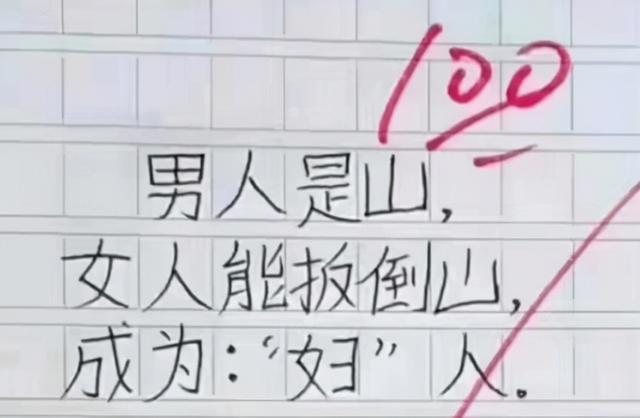 100
男人是山,
女人能扳倒山,
成为:“妇”人。